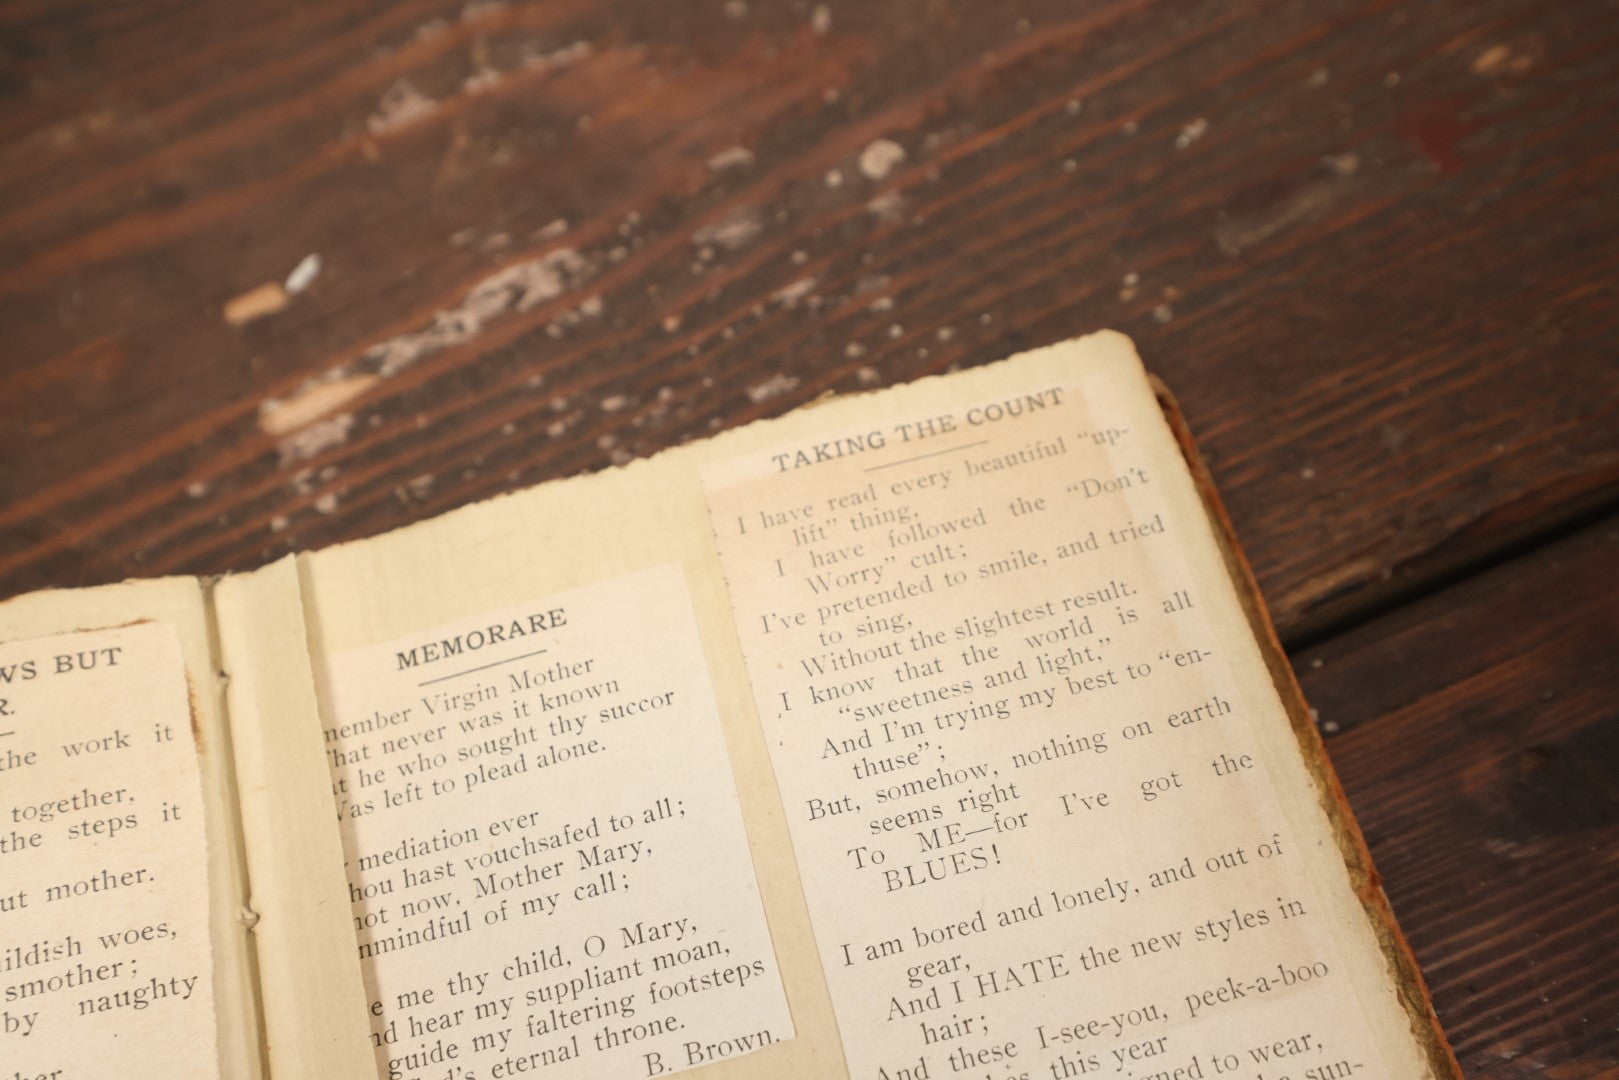 WS BUT
R.
the work it
together,
the steps it
ut mother.
ildish woes,
smother;
by naughty
her
MEMORARE
member Virgin Mother
That never was it known
at he who sought thy succor
Was left to plead alone.
mediation ever
hou hast vouchsafed to all;
not now, Mother Mary,
nmindful of my call;
e me thy child, O Mary,
nd hear my suppliant moan,
guide my faltering footsteps
God's eternal throne.
B. Brown.
TAKING THE COUNT
I have read every beautiful “up-
lift” thing,
I have followed the “Don't
Worry” cult;
I've pretended to smile, and tried
to sing,
Without the slightest result.
I know that the world is all
“sweetness and light,”
And I'm trying my best to “en-
thuse”;
But, somehow, nothing on earth
seems right
To ME—for I've got the
BLUES!
I am bored and lonely, and out of
gear,
And I HATE the new styles in
hair;
And these I-see-you, peek-a-boo
this year
igned to wear,
a sun-